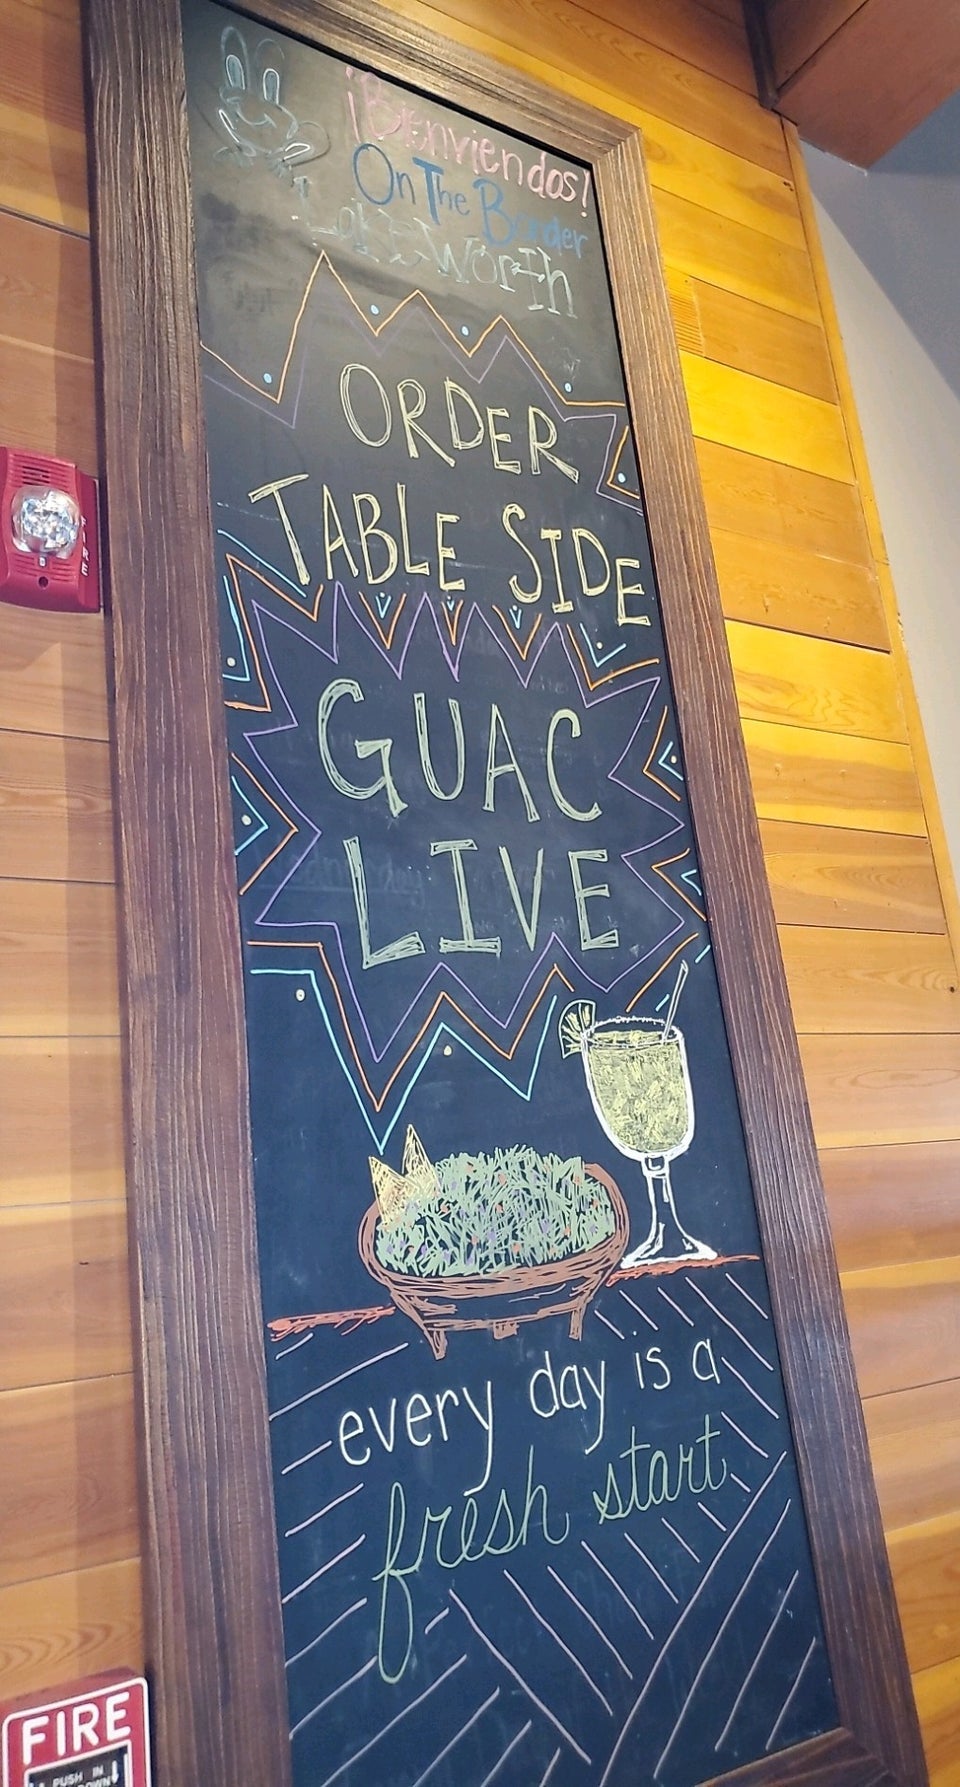 ¡Bienviendos!
On The Border
Lake Worth
ORDER
TABLE SIDE
GUAC
LIVE
every day is a
fresh start
FIRE
FIRE
PUSH IN